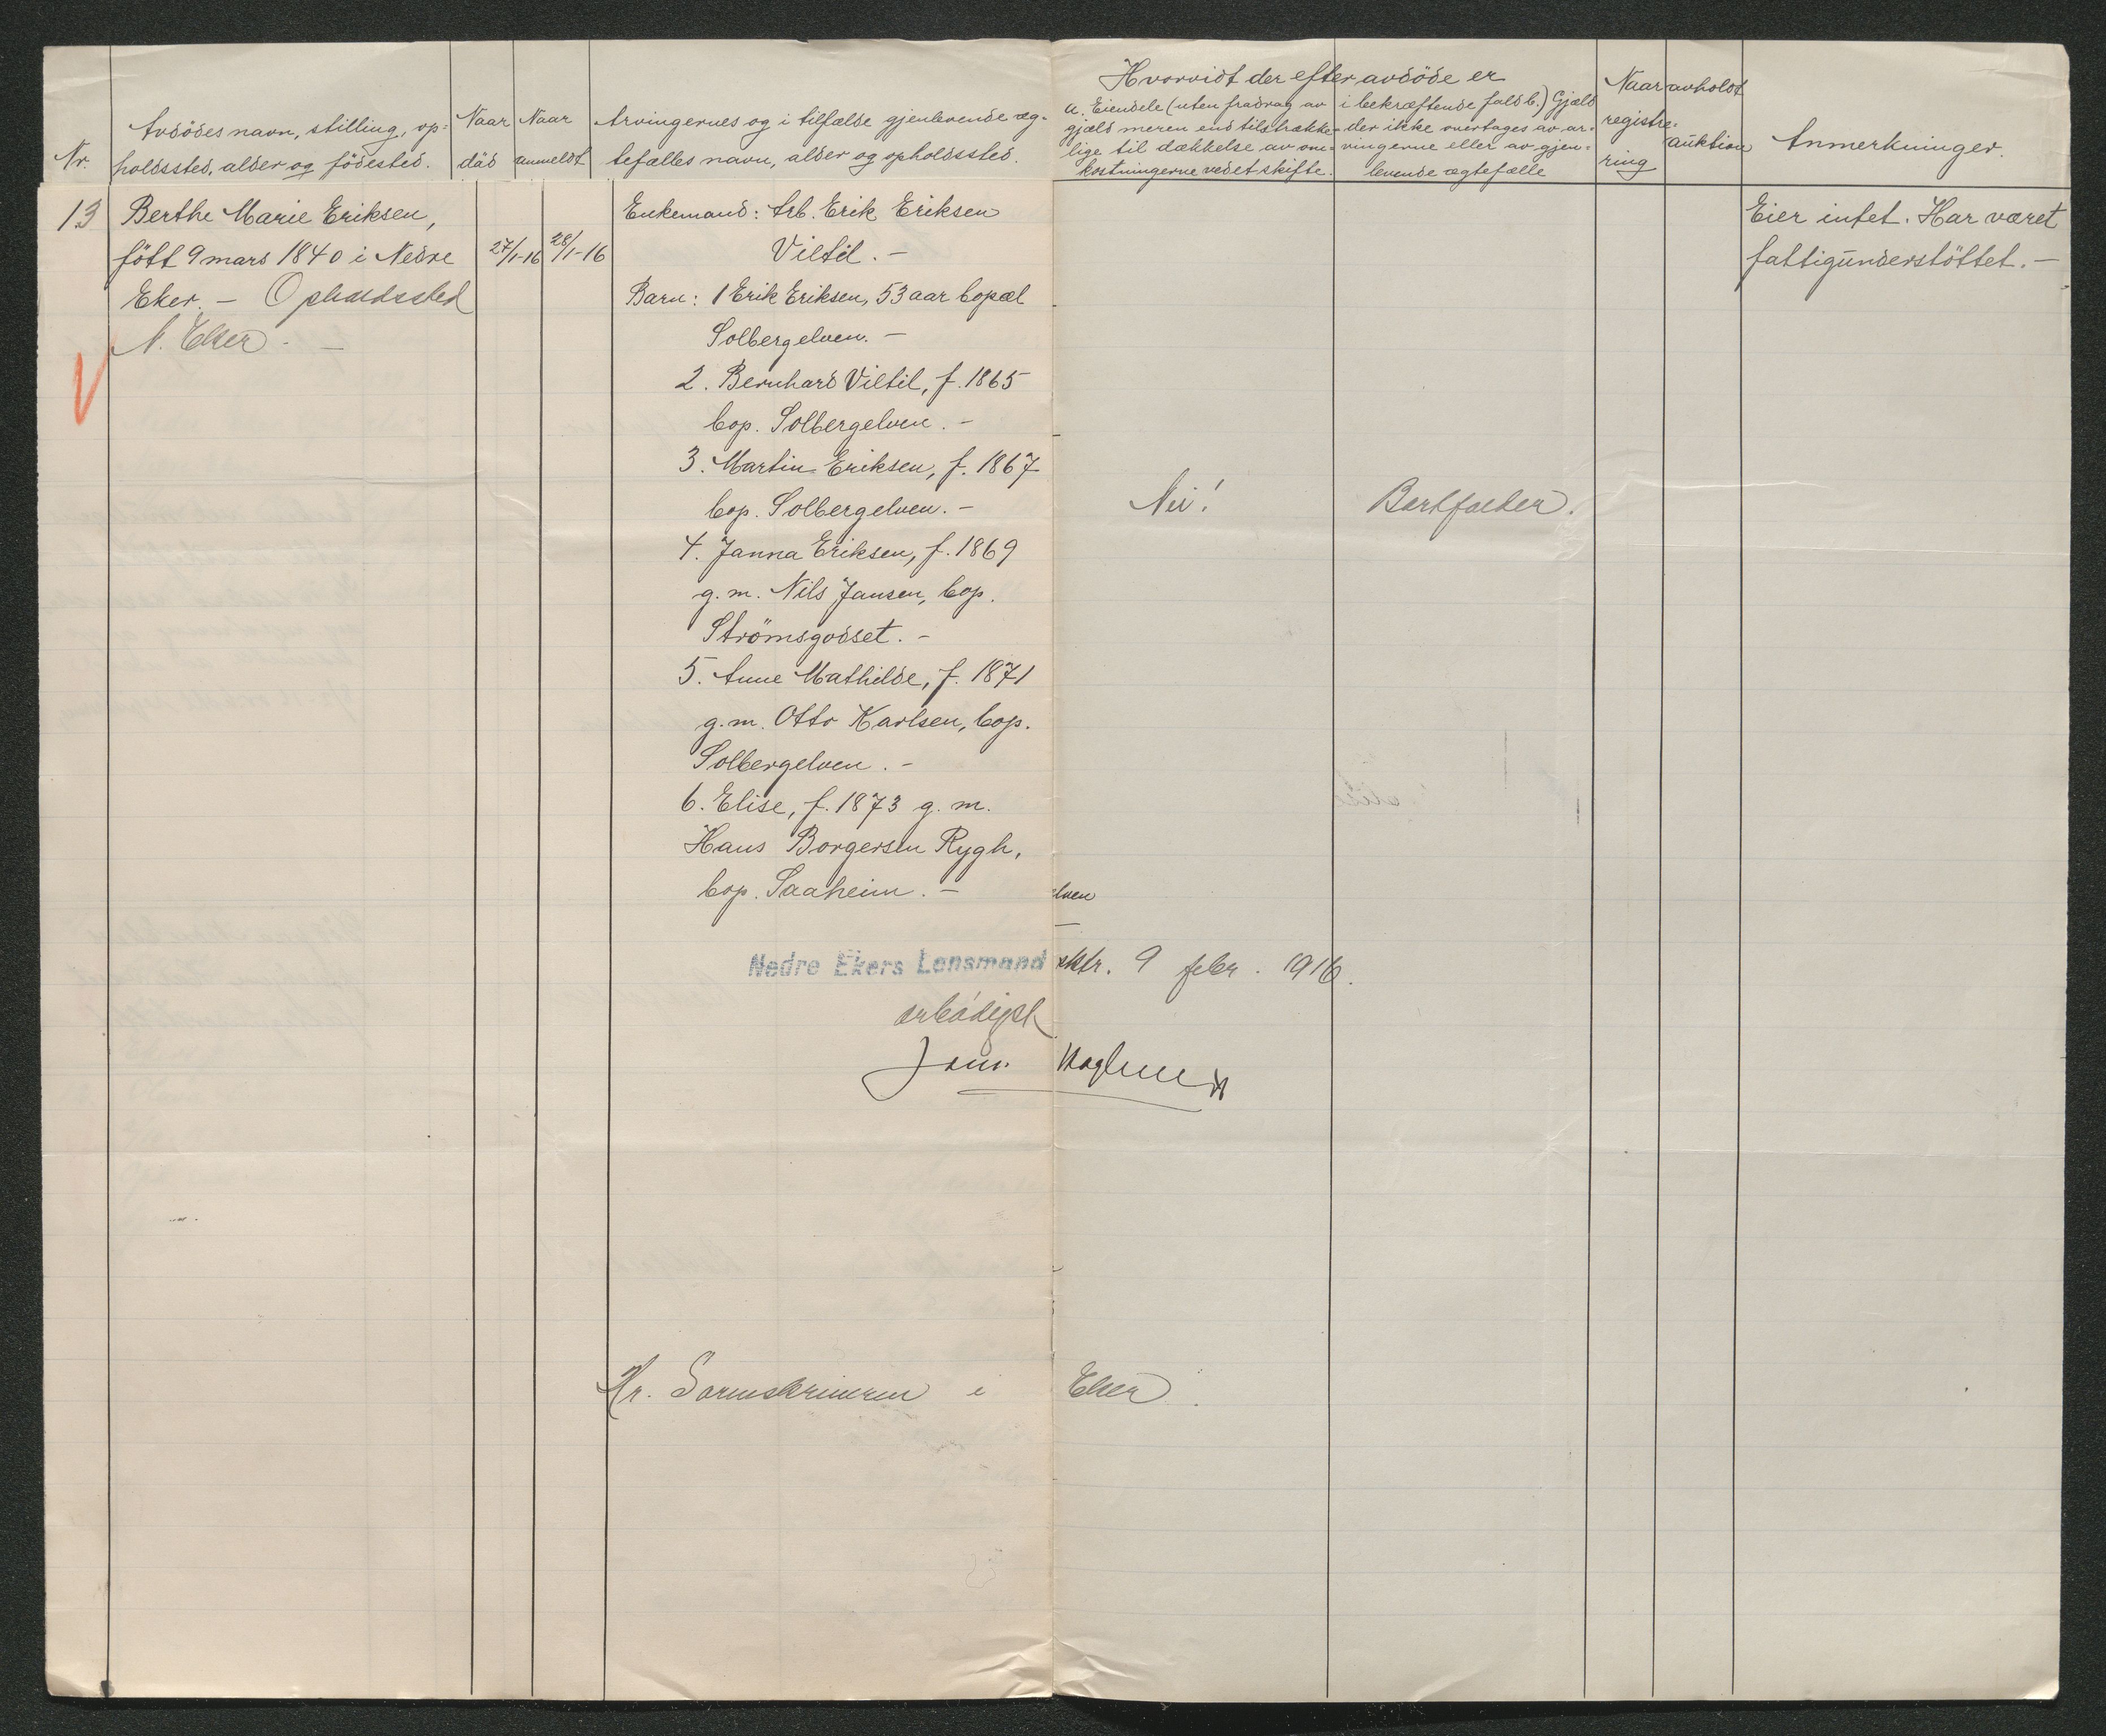 Nr.
Avdödes navn, stilling, op=
holdssted, alder og födested.
Naar
död
Naar
anmeldt
Arvingernes og i tilfælde gjenlevende æg-
tefælles navn, alder og opholdssted.
Hvorvidt der efter avdöde er
a. Eiendele (uten fradrag av
gjæld meren end tilstrække-
lige til dækkelse av om-
kostningerne vedet skifte.
i bekræftende fald b.) Gjæld
der ikke overtages av ar-
vingerne eller av gjen-
levende ægtefælle
Naar avholdt
registre-
ring
auktion
Anmerkninger.
13
Berthe Marie Eriksen,
fött 9 mars 1840 i Nedre
Eker. - Opholdssted
N. Eker. -
27/1-16
28/1-16
Enkemand: Arb. Erik Eriksen
Viltil. -
Barn: 1 Erik Eriksen, 53 aar bopæl
Solbergelven. -
2. Bernhard Viltil, f. 1865
bop. Solbergelven. -
3. Martin Eriksen, f. 1867
bop. Solbergelven. -
4. Janna Eriksen, f. 1869
g. m. Nils Jansen, bop.
Strömsgodset. -
5. Anne Mathilde, f. 1871
g. m. Otto Karlsen, bop.
Solbergelven. -
6. Elise, f. 1873 g. m.
Hans Borgersen Rygh,
bop. Saaheim. -
Nei!
Bortfalder.
Eier intet. Har været
fattigunderstöttet. -
elven
Nedre Ekers Lensmand
ktr. 9 febr. 1916.
ærbödigst
Hr. Sorenskriveren i Eker.